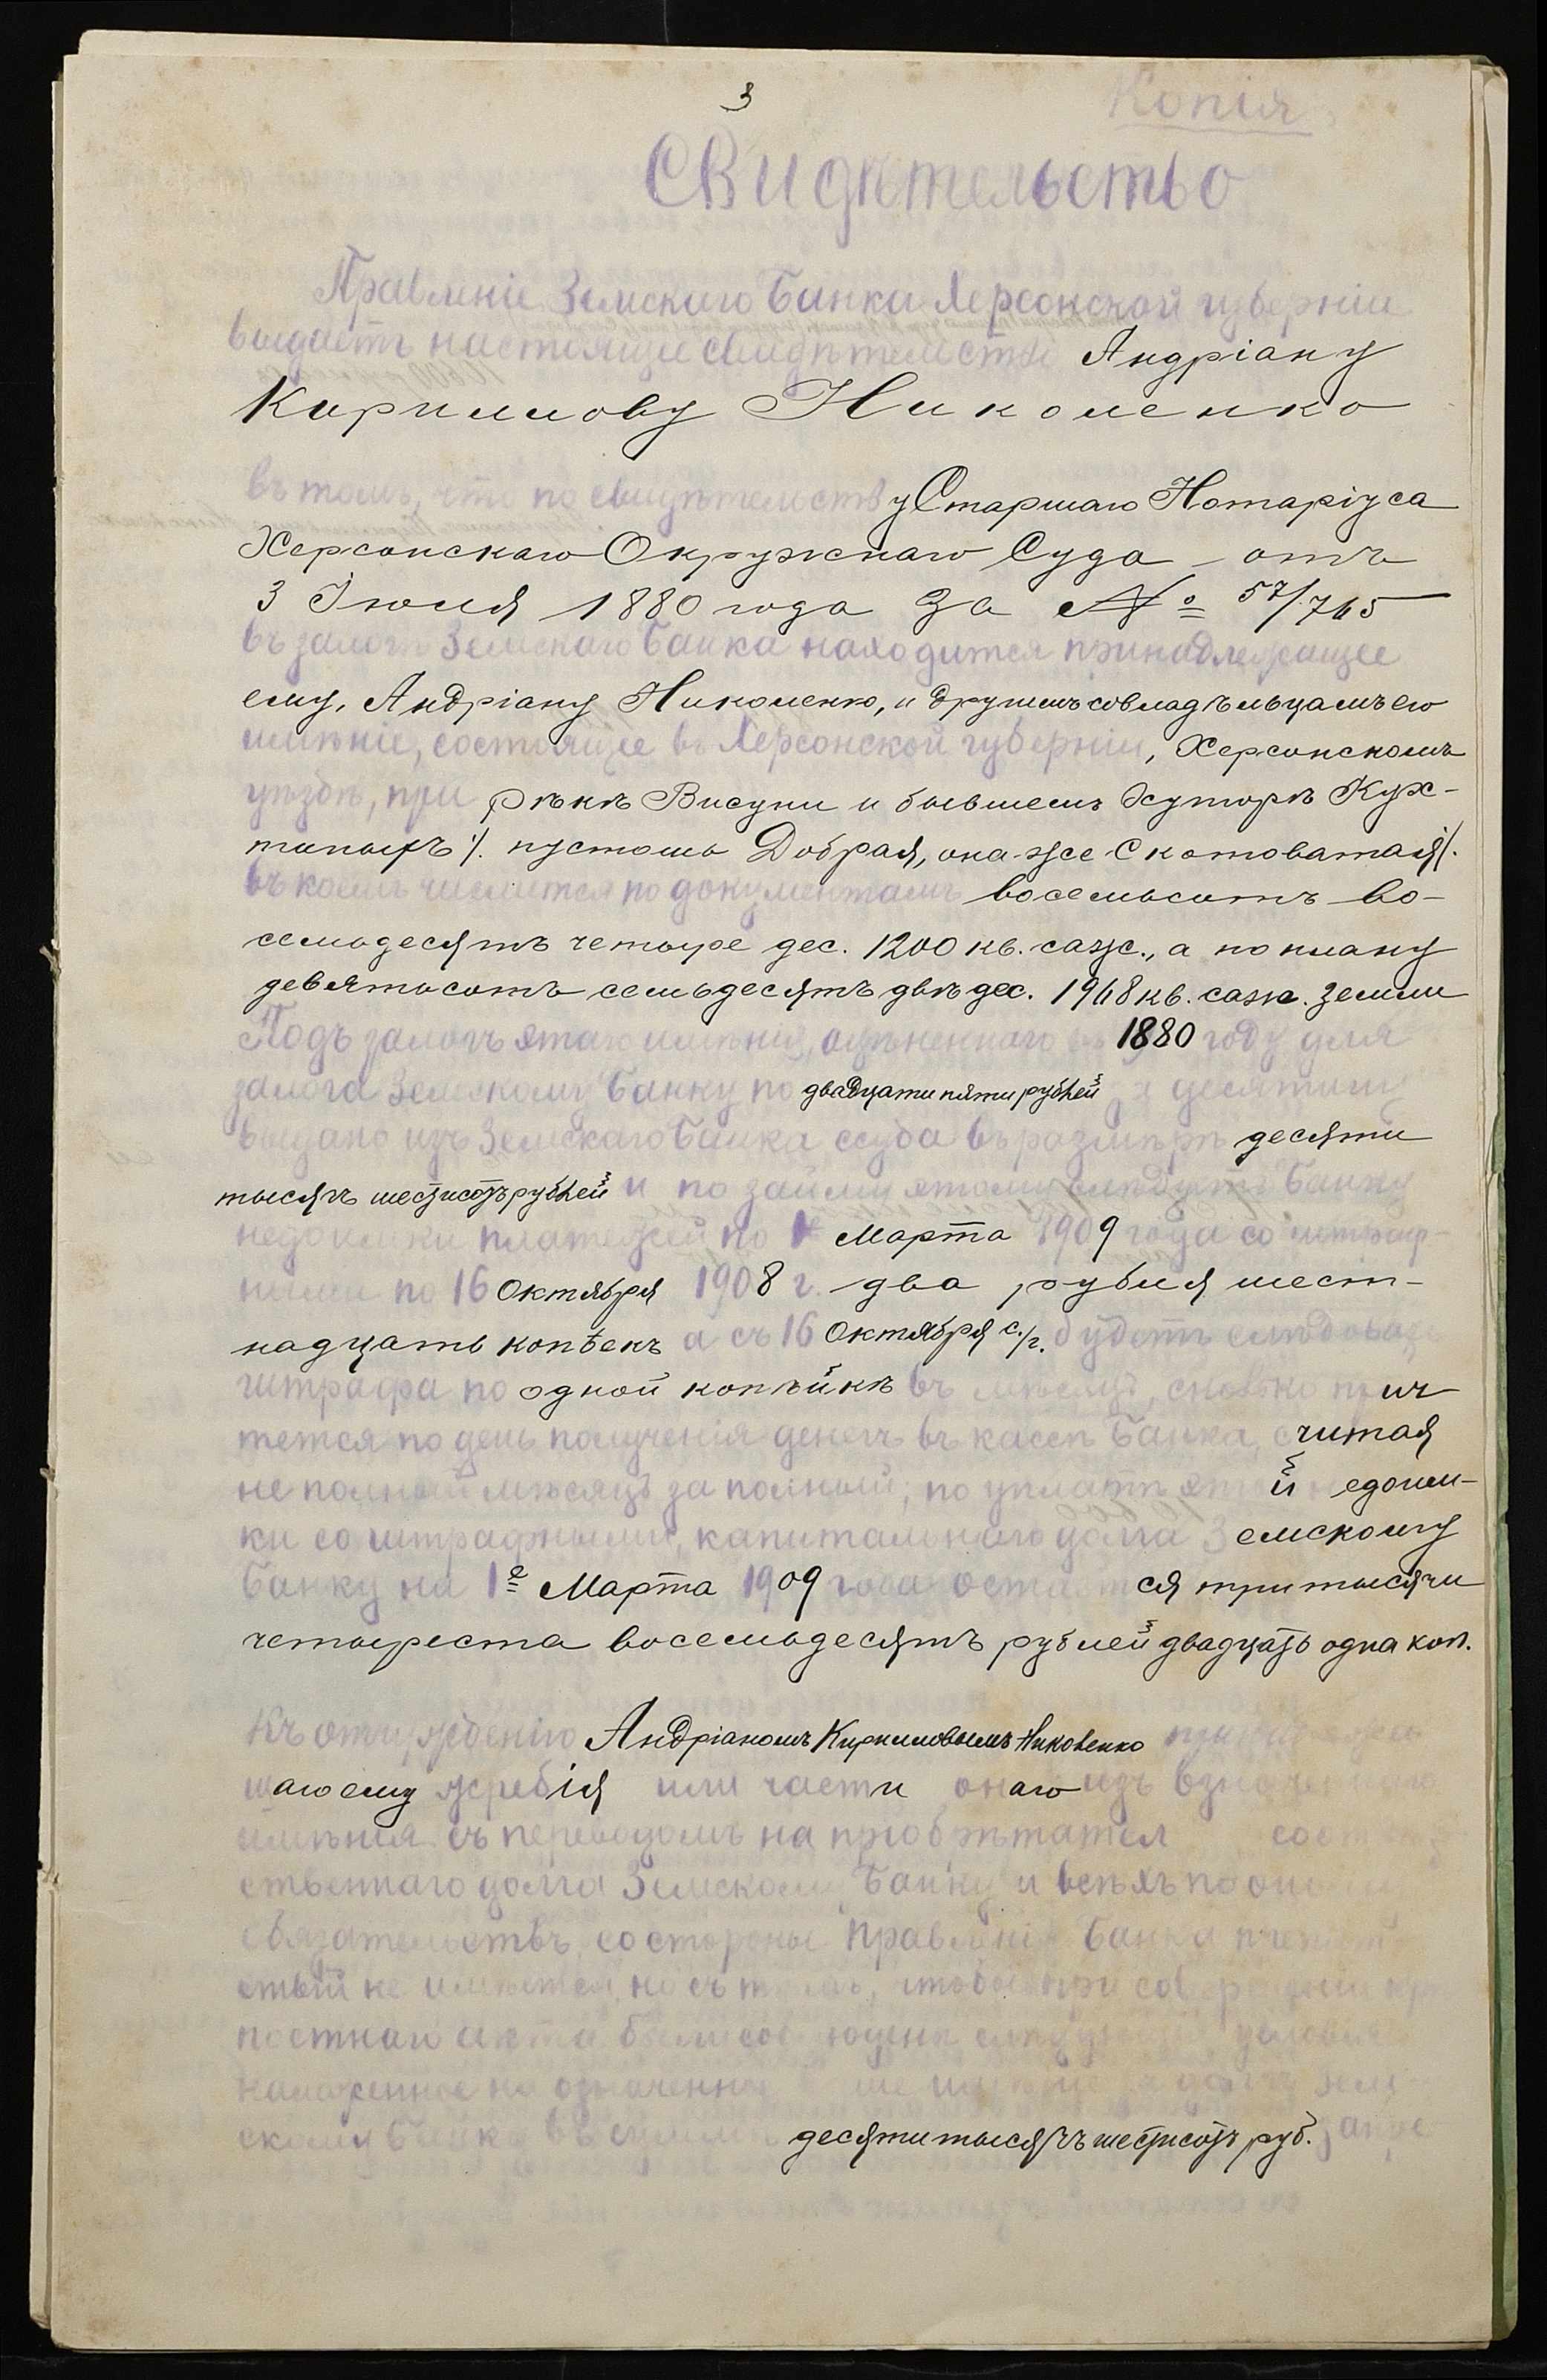 3
Копія
Свидѣтельство
Правленіе Земскаго Банка Херсонской губерніи
выдаетъ настоящее свидѣтельство Андріану
Кириллову Николенко
въ томъ, что по свидѣтельству Старшаго Нотаріуса
Херсонскаго Окружнаго Суда отъ
3 Іюля 1880 года за № 57/765
въ залогѣ Земскаго Банка находится принадлежащее
ему, Андріану Николенко, и другимъ совладѣльцамъ его
имѣніе, состоящее въ Херсонской губерніи, Херсонскомъ
уѣздѣ, при рѣкѣ Висуни и бывшемъ Хуторѣ Кух-
тиныхъ /. пустошь Добрая, она-же Скотоватая/.
въ коемъ числится по документамъ восемьсотъ во-
семьдесятъ четыре дес. 1200 кв. саж., а по плану
девятьсотъ семьдесятъ двѣ дес. 1968 кв. саж. земли
Подъ залогъ этаго имѣнія, оцѣненнаго въ 1880 году для
залога Земскому Банку по двадцати пяти рублей з десятину
выдано изъ Земскаго Банка ссуда въ размѣрѣ десяти
тысячъ шестисотъ рублей и по займу этому слѣдуетъ Банку
недоимки платежей по 1 Марта 1909 года со штраф-
ными по 16 Октября 1908 г. два рубля шест-
надцать копѣекъ а съ 16 Октября с./г. будетъ слѣдовать
штрафа по одной копѣйкѣ въ мѣсяцъ, сколько прич
тется по день полученія денегъ въ кассѣ Банка, считая
не полный мѣсяцъ за полный; по уплатѣ этой недоим-
ки со штрафными, капитальнаго долга Земскому
Банку на 1е Марта 1909 года остается три тысячи
четыреста восемьдесятъ рублей двадцать одна коп.
Къ отчужденію Андріаномъ Кирилловымъ Николенко
щаго ему жребія или части онаго изъ
имѣнія съ переводомъ на пріобрѣтател
ственнаго долга Земскому Банку и всѣхъ по оному
обязательствъ, со стороны Правленія Банка препят
ствій не имѣется, но съ тѣмъ, чтобы при совершеніи крѣ
постнаго акта были соблюдены слѣдующія условія
десяти тысячъ шестисотъ руб.